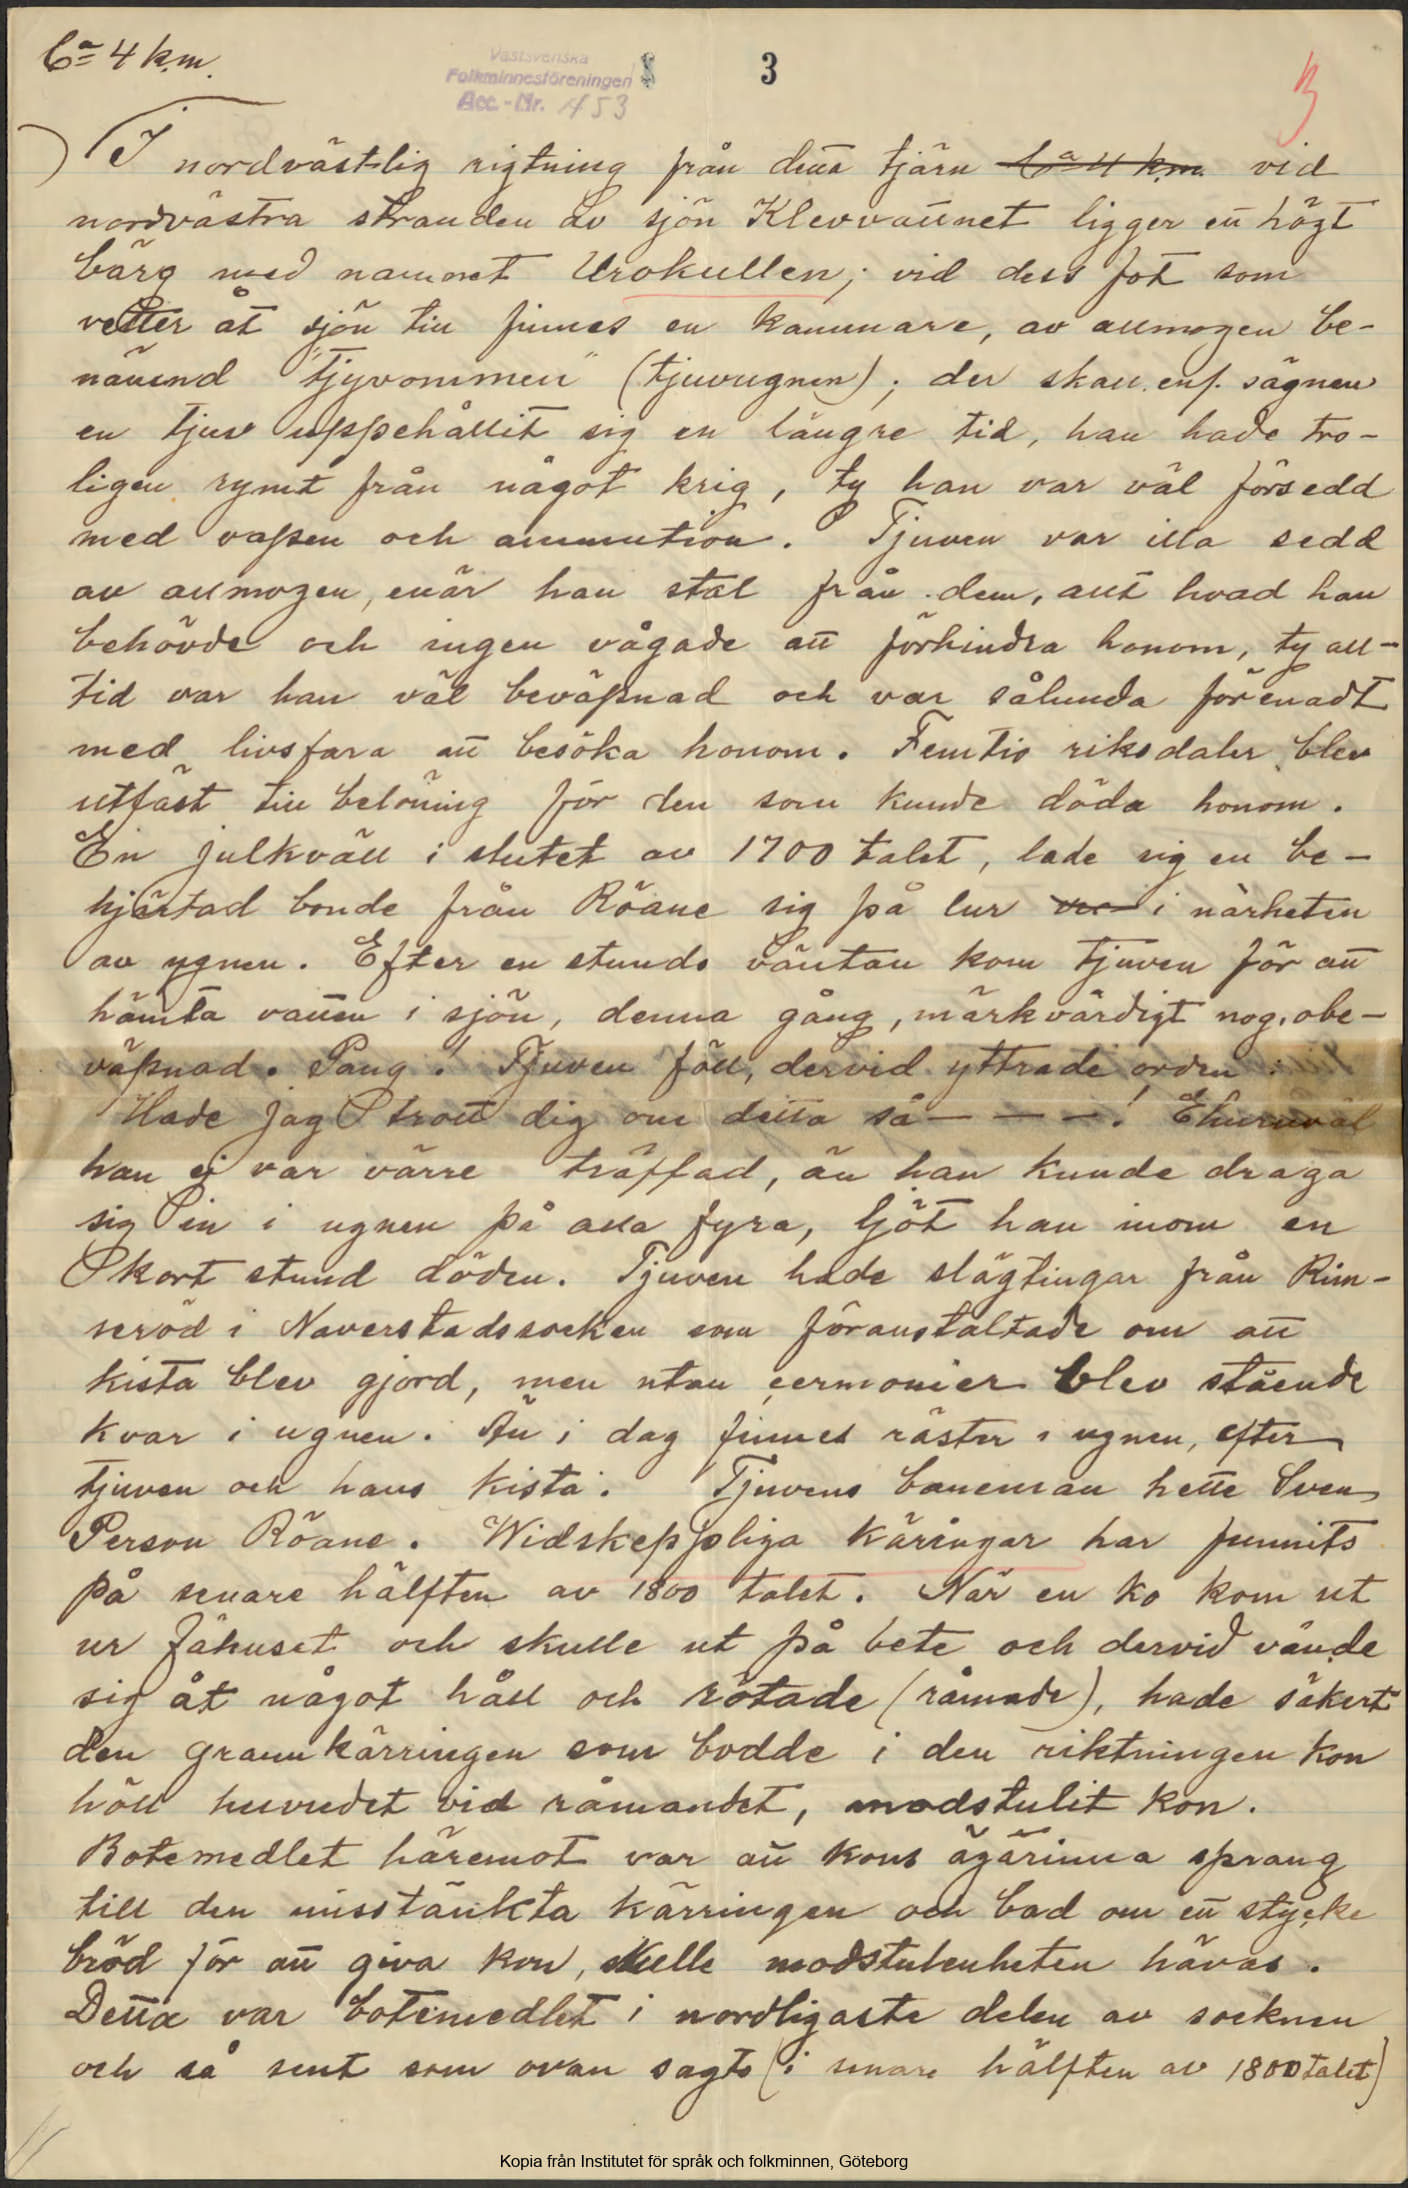 Ca 4 km.
Västsvenska
Folkminnesföreningen
Acc.-Nr. 453
3
I nordvästlig rigtning från detta tjärn Ca 4 km. vid
nordvästra stranden av sjön Klevvattnet ligger ett högt
bärg med namnet Urokullen; vid dess fot som
vetter åt sjön till finnes en kammare, av allmogen be-
nämnd "Tjyvommen" (tjuvugnen); der skall enl. sägnen
en tjuv uppehållit sig en längre tid, han hade tro-
ligen rymt från något krig, ty han var väl försedd
med vapen och ammution. Tjuven var illa sedd
av allmogen, enär han stal från dem, allt hvad han
behövde och ingen vågade att förhindra honom, ty all-
tid var han väl beväpnad och var sålunda förenadt
med livsfara att besöka honom. Femtio riksdaler blev
utfäst till belöning för den som kunde döda honom.
En julkväll i slutet av 1700 talet, lade sig en be-
hjärtad bonde från Röane sig på lur i närheten
av ugnen. Efter en stunds väntan kom tjuven för att
hämta vatten i sjön, denna gång, märkvärdigt nog, obe-
väpnad. Pang! Tjuven föll, dervid yttrade orden:
Hade jag trott dig om detta så — — —! Ehuruväl
han ej var värre träffad, än han kunde draga
sig in i ugnen på alla fyra, ljöt han inom en
kort stund döden. Tjuven hade slägtingar från Rim-
seröd i Naverstadssocken som föranstaltade om att
kista blev gjord, men utan cermonier blev stående
kvar i ugnen. Än i dag finnes räster i ugnen, efter
tjuven och hans kista. Tjuvens baneman hette Sven
Person Röane. Widskeppliga käringar har funnits
på senare hälften av 1800 talet. När en ko kom ut
ur fähuset och skulle ut på bete och dervid vände
sig åt något håll och rötade (råmade), hade säkert
den grannkärringen som bodde i den riktningen kon
höll huvudet vid råmandet, modstulit kon.
Botemedlet häremot var att kons ägarinna sprang
till den misstänkta kärringen och bad om ett stycke
bröd för att giva kon, skulle modstulenheten hävas.
Detta var botemedlet i nordligaste delen av socknen
och så sent som ovan sagts (i senare hälften av 1800 talet)
Kopia från Institutet för språk och folkminnen, Göteborg